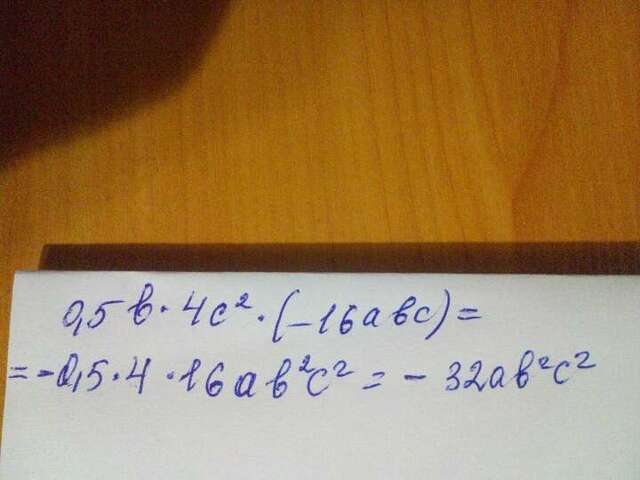 0,5b·4c²·(-16abc)=
=-0,5·4·16ab²c²=-32ab²c²